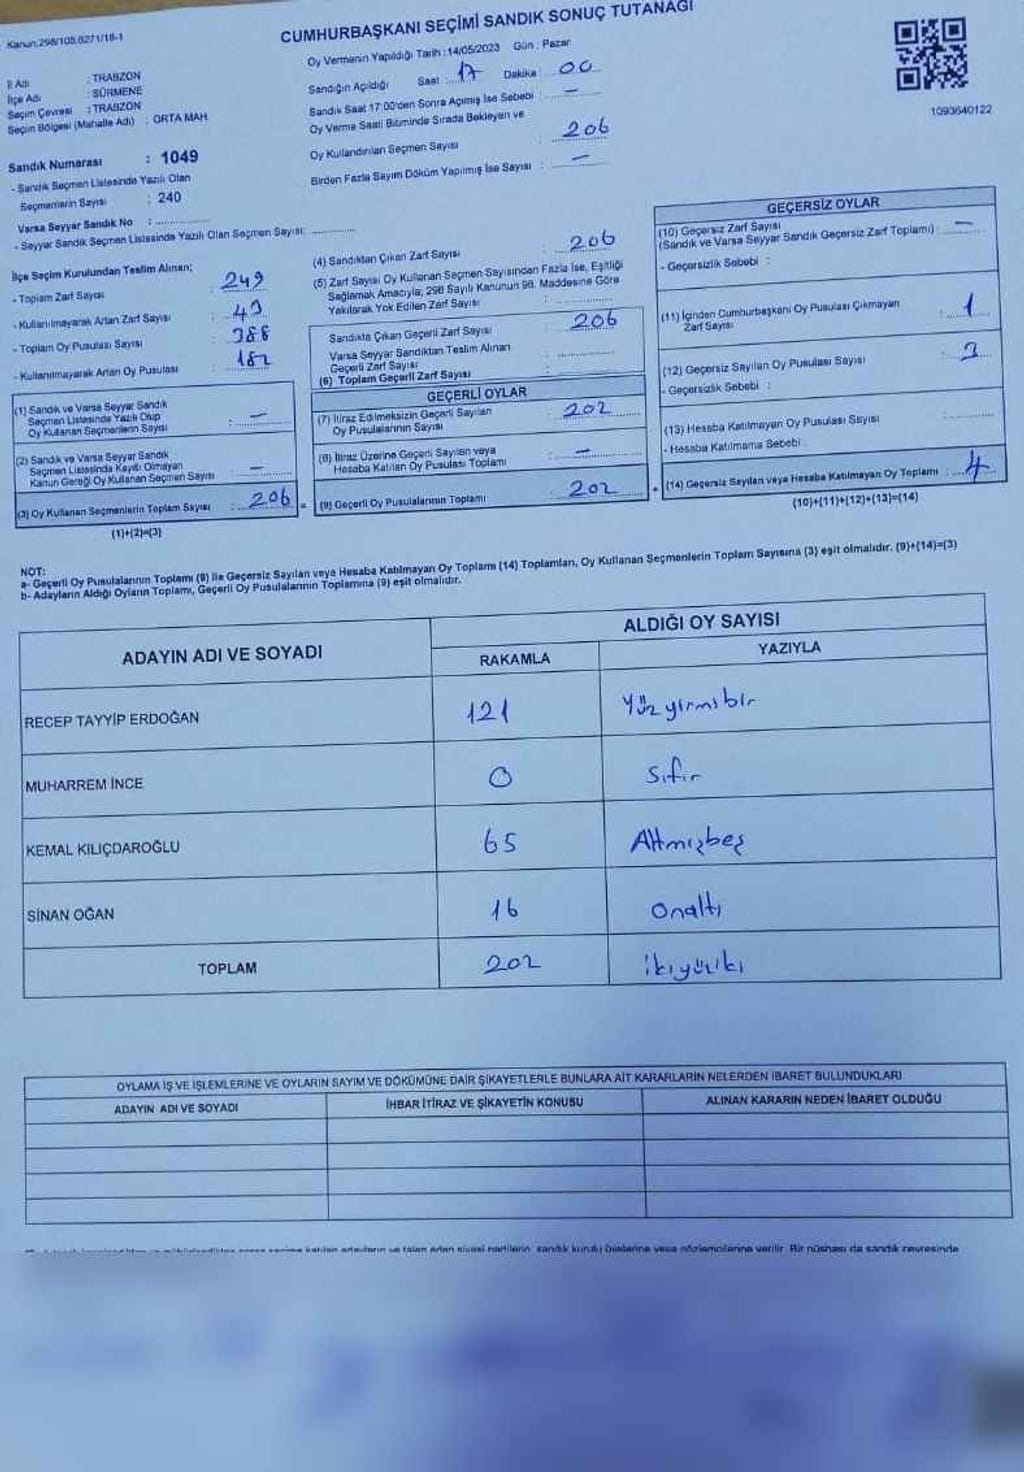 Kanun:298/105,6271/18-1
CUMHURBAŞKANI SEÇİMİ SANDIK SONUÇ TUTANAĞI
Oy Vermenin Yapıldığı Tarih : 14/05/2023 Gün : Pazar
1093640122
İl Adı : TRABZON
İlçe Adı : SÜRMENE
Seçim Çevresi : TRABZON
Seçim Bölgesi (Mahalle Adı) : ORTA MAH
Sandık Numarası : 1049
- Sandık Seçmen Listesinde Yazılı Olan
Seçmenlerin Sayısı : 240
Varsa Seyyar Sandık No :
- Seyyar Sandık Seçmen Listesinde Yazılı Olan Seçmen Sayısı:
Sandığın Açıldığı Saat : 17 Dakika : 00
Sandık Saat 17:00'den Sonra Açılmış İse Sebebi : —
Oy Verme Saati Bitiminde Sırada Bekleyen ve
Oy Kullandırılan Seçmen Sayısı : 206
Birden Fazla Sayım Döküm Yapılmış İse Sayısı : —
İlçe Seçim Kurulundan Teslim Alınan;
- Toplam Zarf Sayısı : 249
- Kullanılmayarak Artan Zarf Sayısı : 43
- Toplam Oy Pusulası Sayısı : 388
- Kullanılmayarak Artan Oy Pusulası : 182
(1) Sandık ve Varsa Seyyar Sandık
Seçmen Listesinde Yazılı Olup
Oy Kullanan Seçmenlerin Sayısı : —
(2) Sandık ve Varsa Seyyar Sandık
Seçmen Listesinde Kayıtlı Olmayan
Kanun Gereği Oy Kullanan Seçmen Sayısı : —
(3) Oy Kullanan Seçmenlerin Toplam Sayısı : 206
(1)+(2)=(3)
(4) Sandıktan Çıkan Zarf Sayısı : 206
(5) Zarf Sayısı Oy Kullanan Seçmen Sayısından Fazla İse, Eşitliği
Sağlamak Amacıyla; 298 Sayılı Kanunun 98. Maddesine Göre
Yakılarak Yok Edilen Zarf Sayısı :
Sandıkta Çıkan Geçerli Zarf Sayısı : 206
Varsa Seyyar Sandıktan Teslim Alınan
Geçerli Zarf Sayısı :
(6) Toplam Geçerli Zarf Sayısı :
GEÇERLİ OYLAR
(7) İtiraz Edilmeksizin Geçerli Sayılan
Oy Pusulalarının Sayısı : 202
(8) İtiraz Üzerine Geçerli Sayılan veya
Hesaba Katılan Oy Pusulası Toplamı : —
(9) Geçerli Oy Pusulalarının Toplamı : 202
GEÇERSİZ OYLAR
(10) Geçersiz Zarf Sayısı
(Sandık ve Varsa Seyyar Sandık Geçersiz Zarf Toplamı) : —
- Geçersizlik Sebebi :
(11) İçinden Cumhurbaşkanı Oy Pusulası Çıkmayan
Zarf Sayısı : 1
(12) Geçersiz Sayılan Oy Pusulası Sayısı : 3
- Geçersizlik Sebebi :
(13) Hesaba Katılmayan Oy Pusulası Sayısı :
- Hesaba Katılmama Sebebi :
(14) Geçersiz Sayılan veya Hesaba Katılmayan Oy Toplamı : 4
(10)+(11)+(12)+(13)=(14)
NOT:
a- Geçerli Oy Pusulalarının Toplamı (9) ile Geçersiz Sayılan veya Hesaba Katılmayan Oy Toplamı (14) Toplamları, Oy Kullanan Seçmenlerin Toplam Sayısına (3) eşit olmalıdır. (9)+(14)=(3)
b- Adayların Aldığı Oyların Toplamı, Geçerli Oy Pusulalarının Toplamına (9) eşit olmalıdır.
ADAYIN ADI VE SOYADI
ALDIĞI OY SAYISI
RAKAMLA YAZIYLA
RECEP TAYYİP ERDOĞAN 121 Yüzyirmibir
MUHARREM İNCE 0 Sıfır
KEMAL KILIÇDAROĞLU 65 Altmışbeş
SİNAN OĞAN 16 Onaltı
TOPLAM 202 ikiyüziki
OYLAMA İŞ VE İŞLEMLERİNE VE OYLARIN SAYIM VE DÖKÜMÜNE DAİR ŞİKAYETLERLE BUNLARA AİT KARARLARIN NELERDEN İBARET BULUNDUKLARI
ADAYIN ADI VE SOYADI İHBAR İTİRAZ VE ŞİKAYETİN KONUSU ALINAN KARARIN NEDEN İBARET OLDUĞU
sandık kurulu üyelerine veya gözlemcilerine verilir. Bir nüshası da sandık çevresinde